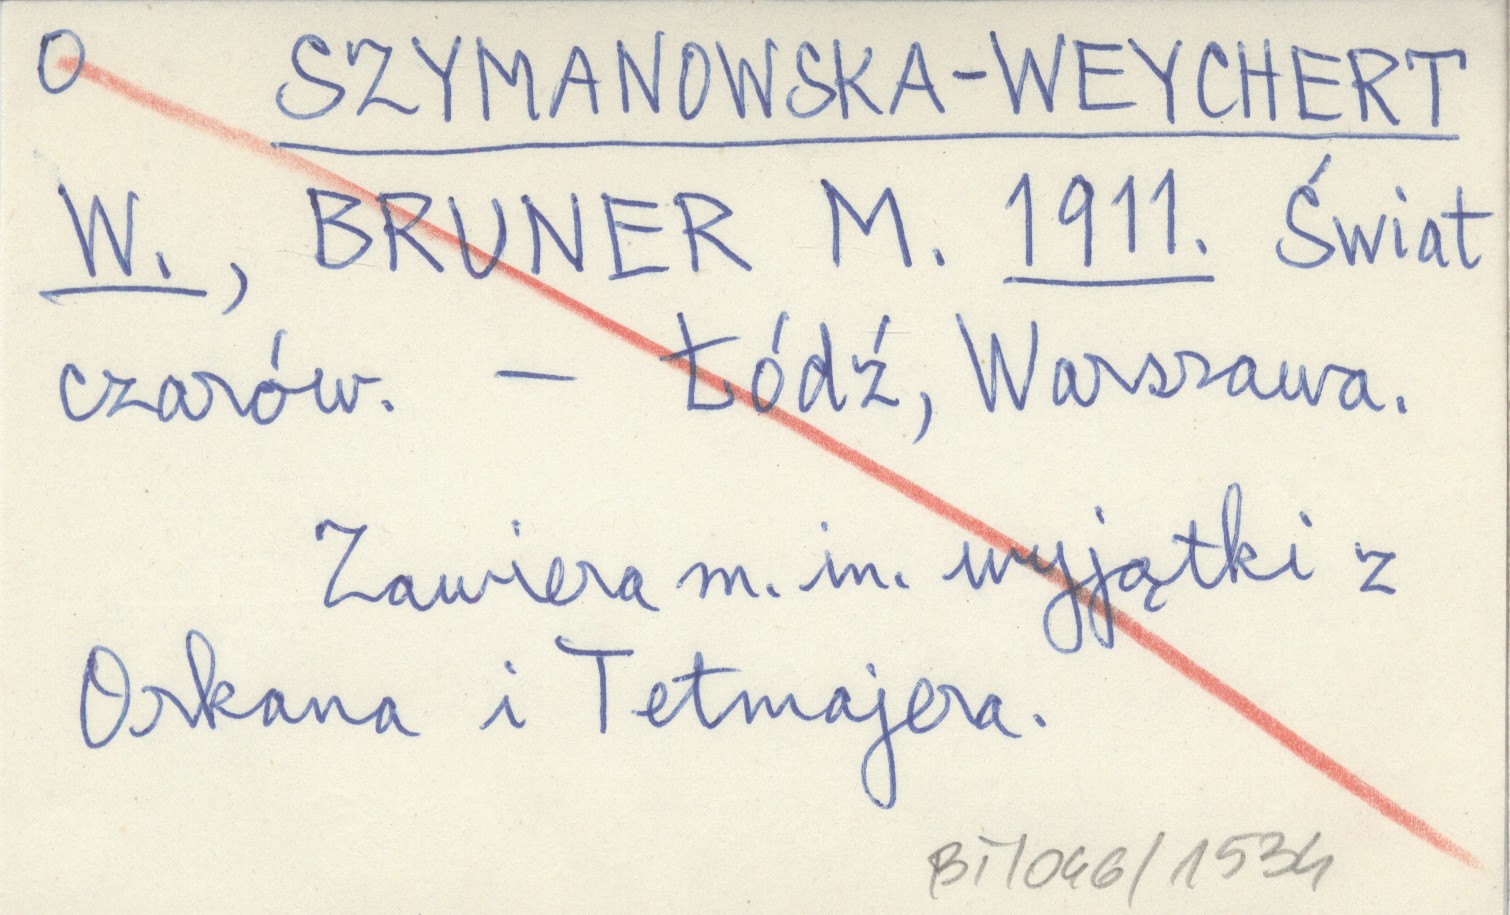 O SZYMANOWSKA-WEYCHERT
W., BRUNER M. 1911. Świat
czarów. — Łódź, Warszawa.
Zawiera m. in. wyjątki z
Orkana i Tetmajera.
BI/046/1534